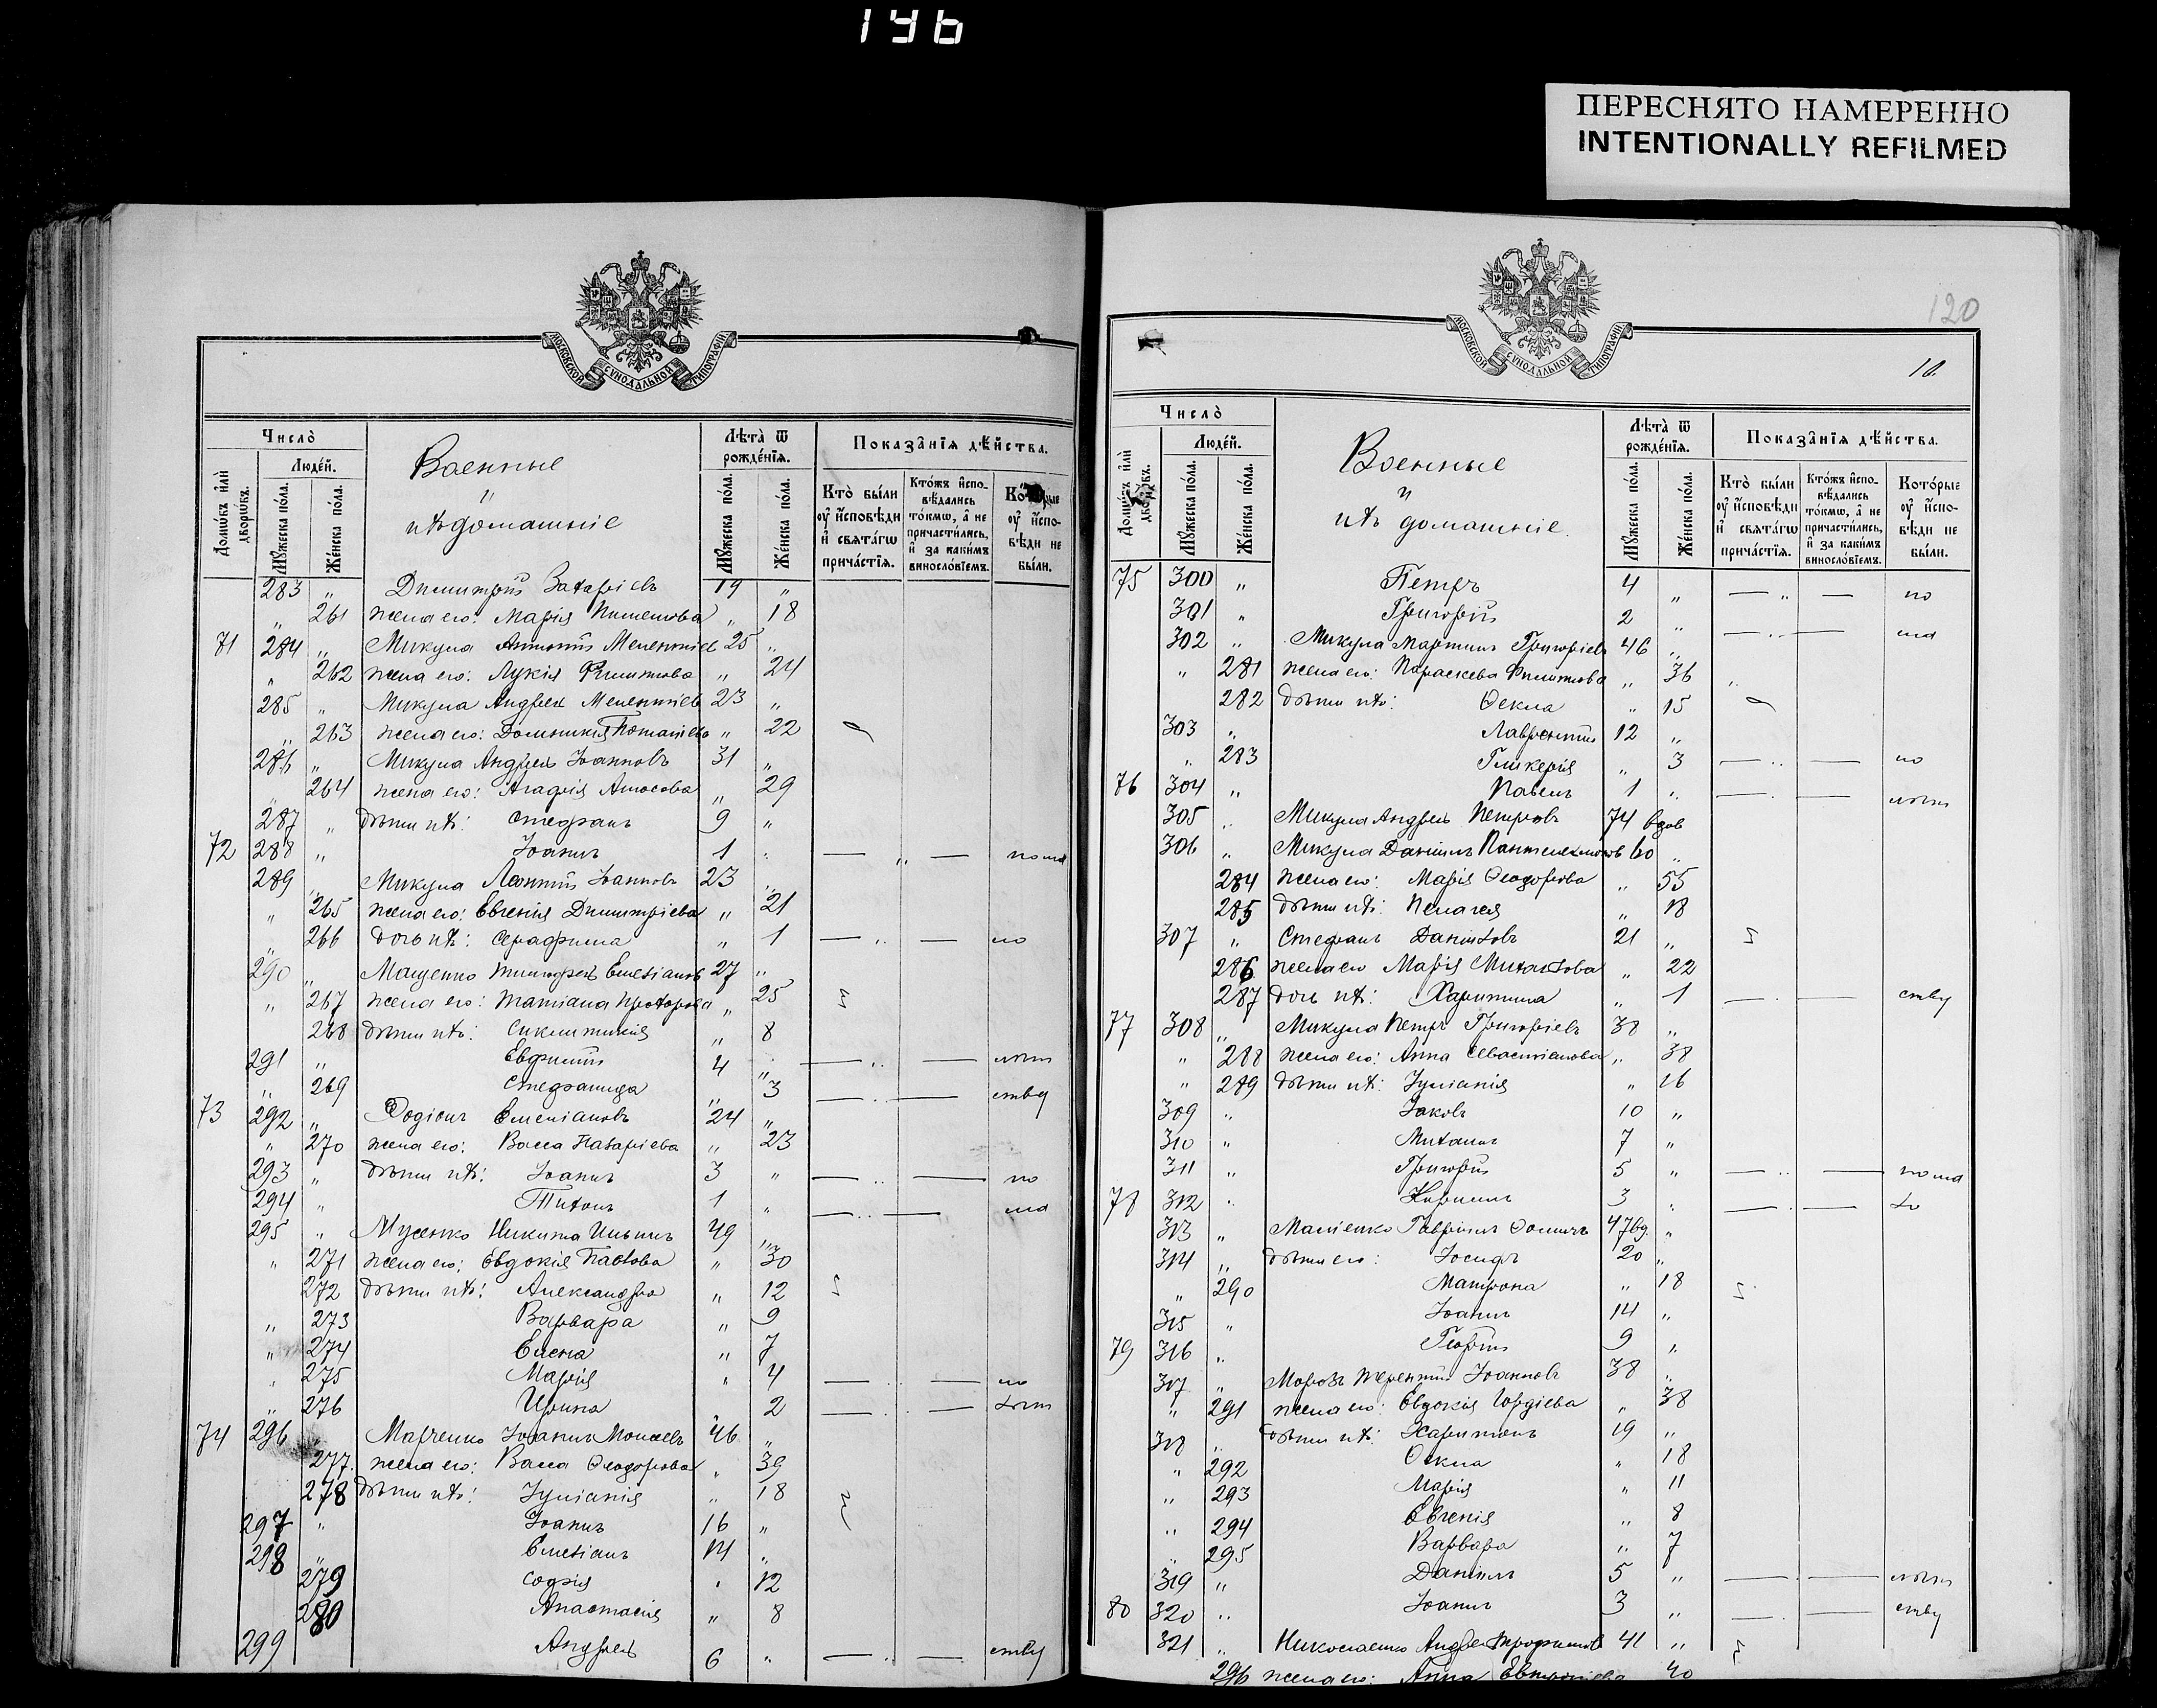 146
ПЕРЕСНЯТО НАМЕРЕННО
INTENTIONALLY REFILMED
МОСКОВСКОЙ СУНОДАЛЬНОЙ ТИПОГРАФІИ
Число̀
Людей.
Домѡвъ и҆лѝ дворѡвъ.
Мꙋжеска по́ла.
Же́нска по́ла.
Военные
и
ихъ домашніе
Лѣта̀ ѿ рожде́нїѧ.
Мꙋжеска по́ла.
Же́нска по́ла.
Показа̂нїѧ дѣ́йства.
Кто̀ бы́ли ᲂу҆ и҆сповѣди и҆ свѧта́гѡ прича́стїѧ.
Кто́жъ и҆спо- вѣ́дались то́кмѡ, а҆ не причасти́лись, и҆ за каки́мъ винословїемъ.
Кото́рые ᲂу҆ и҆спо- вѣди не бы́ли.
283 „ Димитрій Захаріевъ 19 „
„ 261 жена его: Марія „ 18
71 284 „ Микула Мелентіев 25 „
„ 262 жена его: Лукія Филиппова „ 24
285 „ Микула Андрей Мелентіев 23 „
„ 263 жена его: Домникія „ 22
286 „ Микула Андрей Іоанновъ 31 „
„ 264 жена его: Агафія Амосова „ 29
287 „ дѣти ихъ: Стефанъ 9 „
72 288 „ Іоаннъ 1 „ — „ — по мал
289 „ Микула Леонтій Іоанновъ 23 „
„ 265 жена его: Евгенія Димитріева „ 21
„ 266 дочь ихъ: Серафима „ 1 — „ — по
290 „ Мащенко Тимофей Емеліановъ 27 „
„ 267 жена его: Татіана Прохорова „ 25
268 дѣти ихъ: Сиклитикія „ 8
291 „ Евфимій 4 „ — „ — лѣт
„ 269 Стефанида „ 3 — — ству
73 292 „ Родіонъ Емеліановъ 24 „
„ 270 жена его: Васса Назаріева „ 23
293 „ дѣти ихъ: Іоаннъ 3 „ — „ — по
294 „ Тихонъ 1 „ — „ — мал
295 „ Мусенко Никита Ильинъ 49 „
„ 271 жена его: Евдокія Павлова „ 30
272 дѣти ихъ: Александра „ 12
„ 273 Варвара „ 9
„ 274 Елена „ 7
„ 275 Марія „ 4 — — по
„ 276 Ирина 2 — — лѣт
74 296 „ Марченко Іоаннъ Моисеевъ 46 „
277 жена его: Васса Ѳеодорова „ 39
278 дѣти ихъ: Іуліанія „ 18
297 „ Іоаннъ 16 „
298 „ Емеліанъ 14 „
279 Софія „ 12
280 Анастасія „ 8
299 Андрей 6 „ — „ — ству
120
МОСКОВСКОЙ СУНОДАЛЬНОЙ ТИПОГРАФІИ
Число̀
Людей.
Домѡвъ и҆лѝ дворѡвъ.
Мꙋжеска по́ла.
Же́нска по́ла.
Военные
и
ихъ домашніе.
Лѣта̀ ѿ рожде́нїѧ.
Мꙋжеска по́ла.
Же́нска по́ла.
Показа̂нїѧ дѣ́йства.
Кто̀ бы́ли ᲂу҆ и҆сповѣди и҆ свѧта́гѡ прича́стїѧ.
Кто́жъ и҆спо- вѣ́дались то́кмѡ, а҆ не причасти́лись, и҆ за каки́мъ винословїемъ.
Кото́рые ᲂу҆ и҆спо- вѣди не бы́ли.
75 300 „ Петръ 4 „ — „ — по
301 „ Григорій 2 „ — „ — мал
302 „ Микула Мартинъ Григоріевъ 46 „
„ 281 жена его: Параскева Филиппова „ 36
282 дѣти ихъ: Ѳекла „ 15
303 „ Лаврентій 12 „
„ 283 Гликерія „ 3 — „ — по
76 304 „ Павелъ 1 „ — — лѣт
305 „ Микула Андрей Петровъ 74 вдов
306 „ Микула Даніилъ Пантелеимонов 60 „
284 жена его: Марія Ѳеодорова „ 55
285 дѣти ихъ: Пелагея „ 18
307 „ Стефанъ Даніиловъ 21 „
286 жена его Марія Михайлова „ 22
287 дочь ихъ: Харитина „ 1 — — ству
77 308 „ Микула Петръ Григоріевъ 38 „
„ 288 жена его: Анна Севастіанова „ 38
„ 289 дѣти ихъ: Іуліанія „ 16
309 „ Іаковъ 10 „
310 „ Михаилъ 7 „
311 „ Григорій 5 „ — „ — по мал
78 312 „ Кириллъ 3 „ — — лѣ
313 „ Гавріилъ Ѳоминъ 47 вд. „
314 „ дѣти его: Іосифъ 20 „
„ 290 Матрона „ 18
315 „ Іоаннъ 14 „
79 316 „ Георгій 9 „
317 „ Морозъ Терентій Іоанновъ 38 „
„ 291 жена его: Евдокія Гордіева „ 38
318 „ дѣти ихъ: Харитонъ 19 „
„ 292 Ѳекла „ 18
„ 293 Марія „ 11
„ 294 Евгенія „ 8
„ 295 Варвара „ 7
319 „ Даніилъ 5 „ — — лѣт
80 320 „ Іоаннъ 3 „ — — ству
321 „ Николаенко Андрей Трофимов 41 „
296 жена его: Анна 40